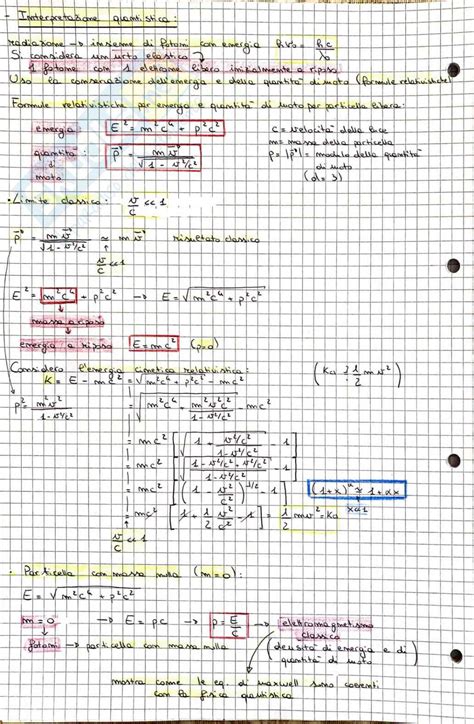 - Interpretazione quantistica:
radiazione → insieme di fotoni con energia hν₀ = hc/λ₀
Si considera un urto elastico
1 fotone con 1 elettrone libero inizialmente a riposo
Uso la conservazione dell'energia e della quantità di moto (formule relativistiche)
Formule relativistiche per energia e quantità di moto per particella libera:
energia: E² = m²c⁴ + p²c²
c = velocità della luce
m = massa della particella
quantità di moto: p⃗ = mv⃗/√(1 - v²/c²)
p = |p⃗| = modulo della quantità di moto
(d = 3)
• Limite classico: v/c ≪ 1
p⃗ = mv⃗/√(1 - v²/c²) ≃ mv⃗ risultato classico
v/c ≪ 1
E² = m²c⁴ + p²c² → E = √(m²c⁴ + p²c²)
massa a riposo
energia a riposo E = mc² (p=0)
Considero l'energia cinetica relativistica:
K = E - mc² = √(m²c⁴ + p²c²) - mc²
(Kcl = 1/2 mv²)
p² = m²v²/(1 - v²/c²)
= √(m²c⁴ + m²v²c²/(1 - v²/c²)) - mc²
= mc² [√(1 + (v²/c²)/(1 - v²/c²)) - 1]
= mc² [√((1 - v²/c² + v²/c²)/(1 - v²/c²)) - 1]
= mc² [(1 - v²/c²)^(-1/2) - 1]
(1+x)^α ≃ 1 + αx
x≪1
= mc² [1 + 1/2 v²/c² - 1] = 1/2 mv² = Kcl
v/c ≪ 1
• Particella con massa nulla (m=0):
E = √(m²c⁴ + p²c²)
m = 0 → E = pc → p = E/c → elettromagnetismo classico
fotoni → particella con massa nulla
(densità di energia e di quantità di moto)
mostra come le eq. di maxwell sono coerenti
con la fisica quantistica